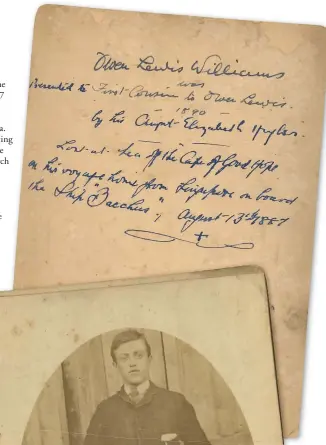 ne
7
a.
ving
e
ch
e
Owen Lewis Williams
was
Presented to First Cousin to Owen Lewis.
1890
by his Aunt Elizabeth Hughes.
Lost at Sea off the Cape of Good Hope
on his voyage home from Singapore on board
the Ship "Bacchus", August 13th 1887